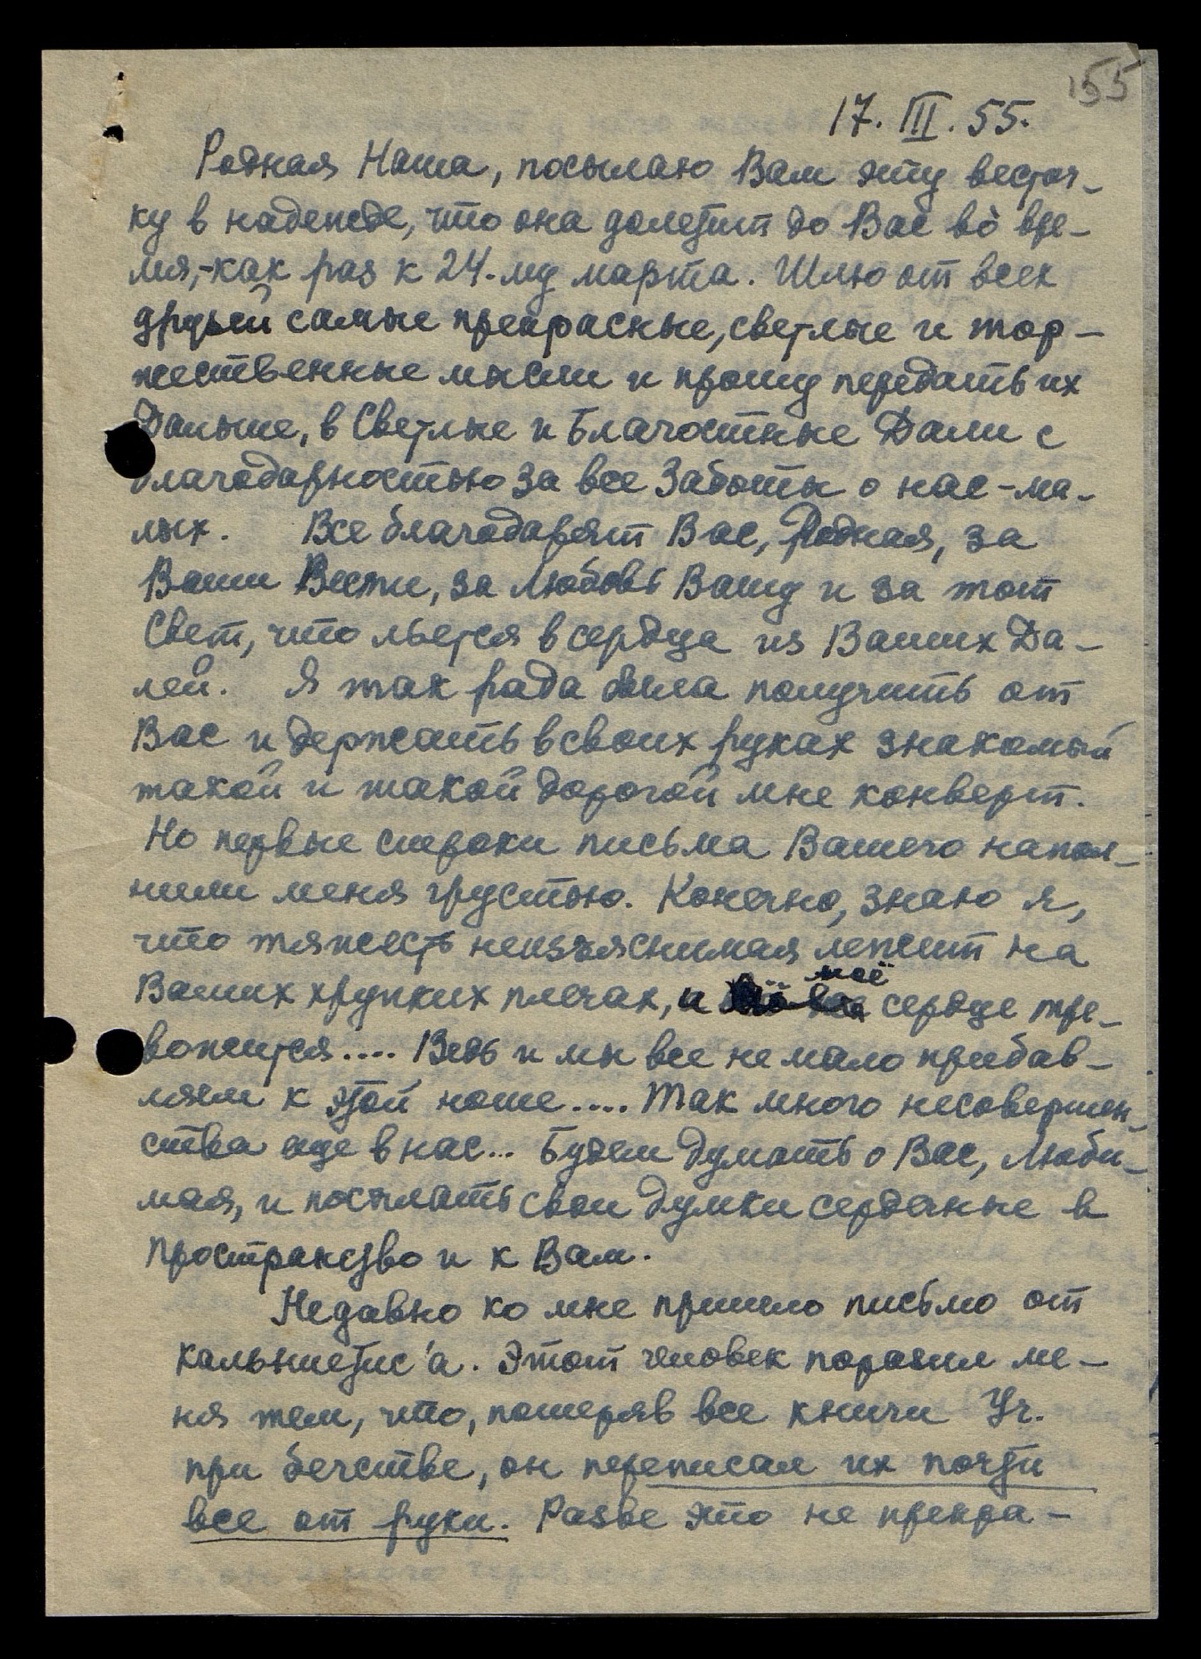 155
17. III. 55.
Родная Наша, посылаю Вам эту весточ-
ку в надежде, что она долетит до Вас во̀ вре-
мя,-как раз к 24-му марта. Шлю от всех
друзей самые прекрасные, светлые и тор-
жественные мысли и прошу передать их
Дальше, в Светлые и Благостные Дали с
благодарностью за все Заботы о нас-ма-
лых. Все благодарят Вас, Родная, за
Ваши Вести, за Любовь Вашу и за тот
Свет, что льется в сердца из Ваших Да-
лей. Я так рада была получить от
Вас и держать в своих руках знакомый
такой и такой дорогой мне конверт.
Но первые строки письма Вашего напол-
нили меня грустью. Конечно, знаю я,
что тяжесть неизъяснимая лежит на
Ваших хрупких плечах, и моё сердце тре-
вожится.... Ведь и мы все не мало прибав-
ляем к этой ноше.... Так много несовершен-
ства еще в нас... Будем думать о Вас, Люби-
мая, и посылать свои думки сердечные в
пространство и к Вам.
Недавно ко мне пришло письмо от
Кальниетис'а. Этот человек поразил ме-
ня тем, что, потеряв все книги Уч.
при бегстве, он переписал их почти
все от руки. Разве это не прекра-